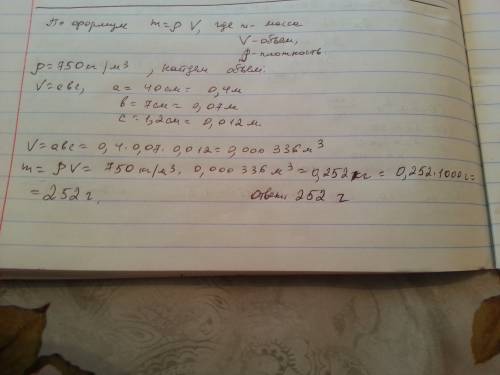 По формуле m=ρ V, где m- масса
V-объем,
ρ-плотность.
ρ=750кг/м³, найдем объем:
V=abc, a=40см=0,4м
в=7см=0,07м
c=1,2см=0,012м.
V=abc=0,4·0,07·0,012=0,000336м³
m=ρV=750кг/м³·0,000336м³=0,252кг=0,252·1000г=
=252г. ответ: 252 г